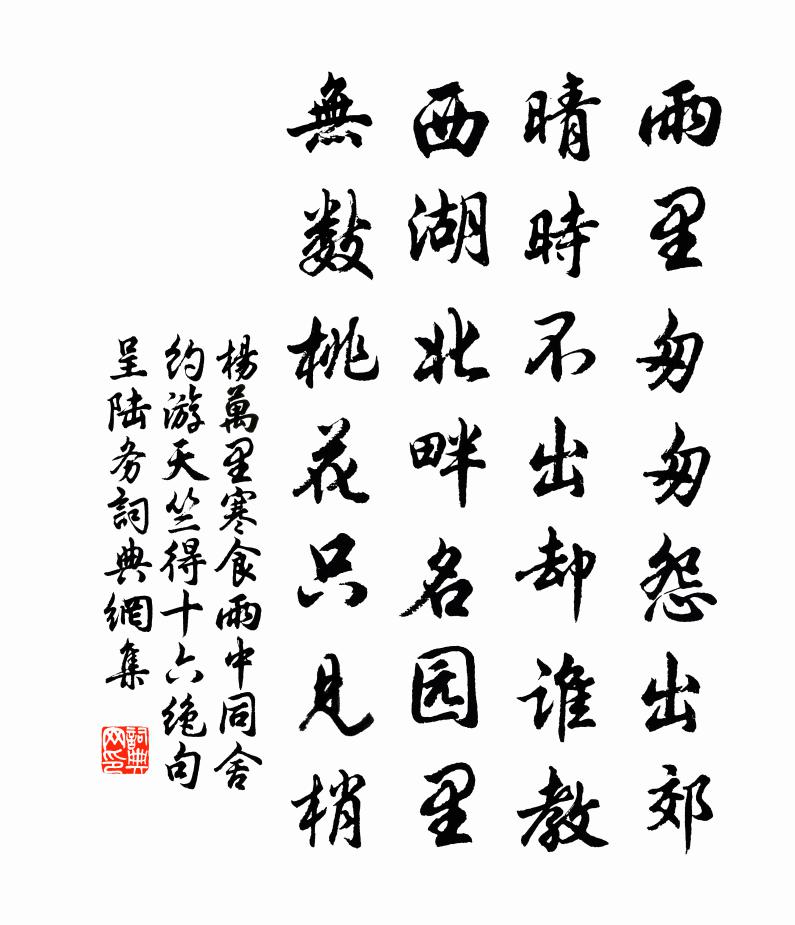 雨里匆匆怨出郊
晴時不出却誰教
西湖北畔名园里
無数桃花只見梢
楊萬里寒食雨中同舍
约游天竺得十六绝句
呈陆务詞典網集
詞典网印